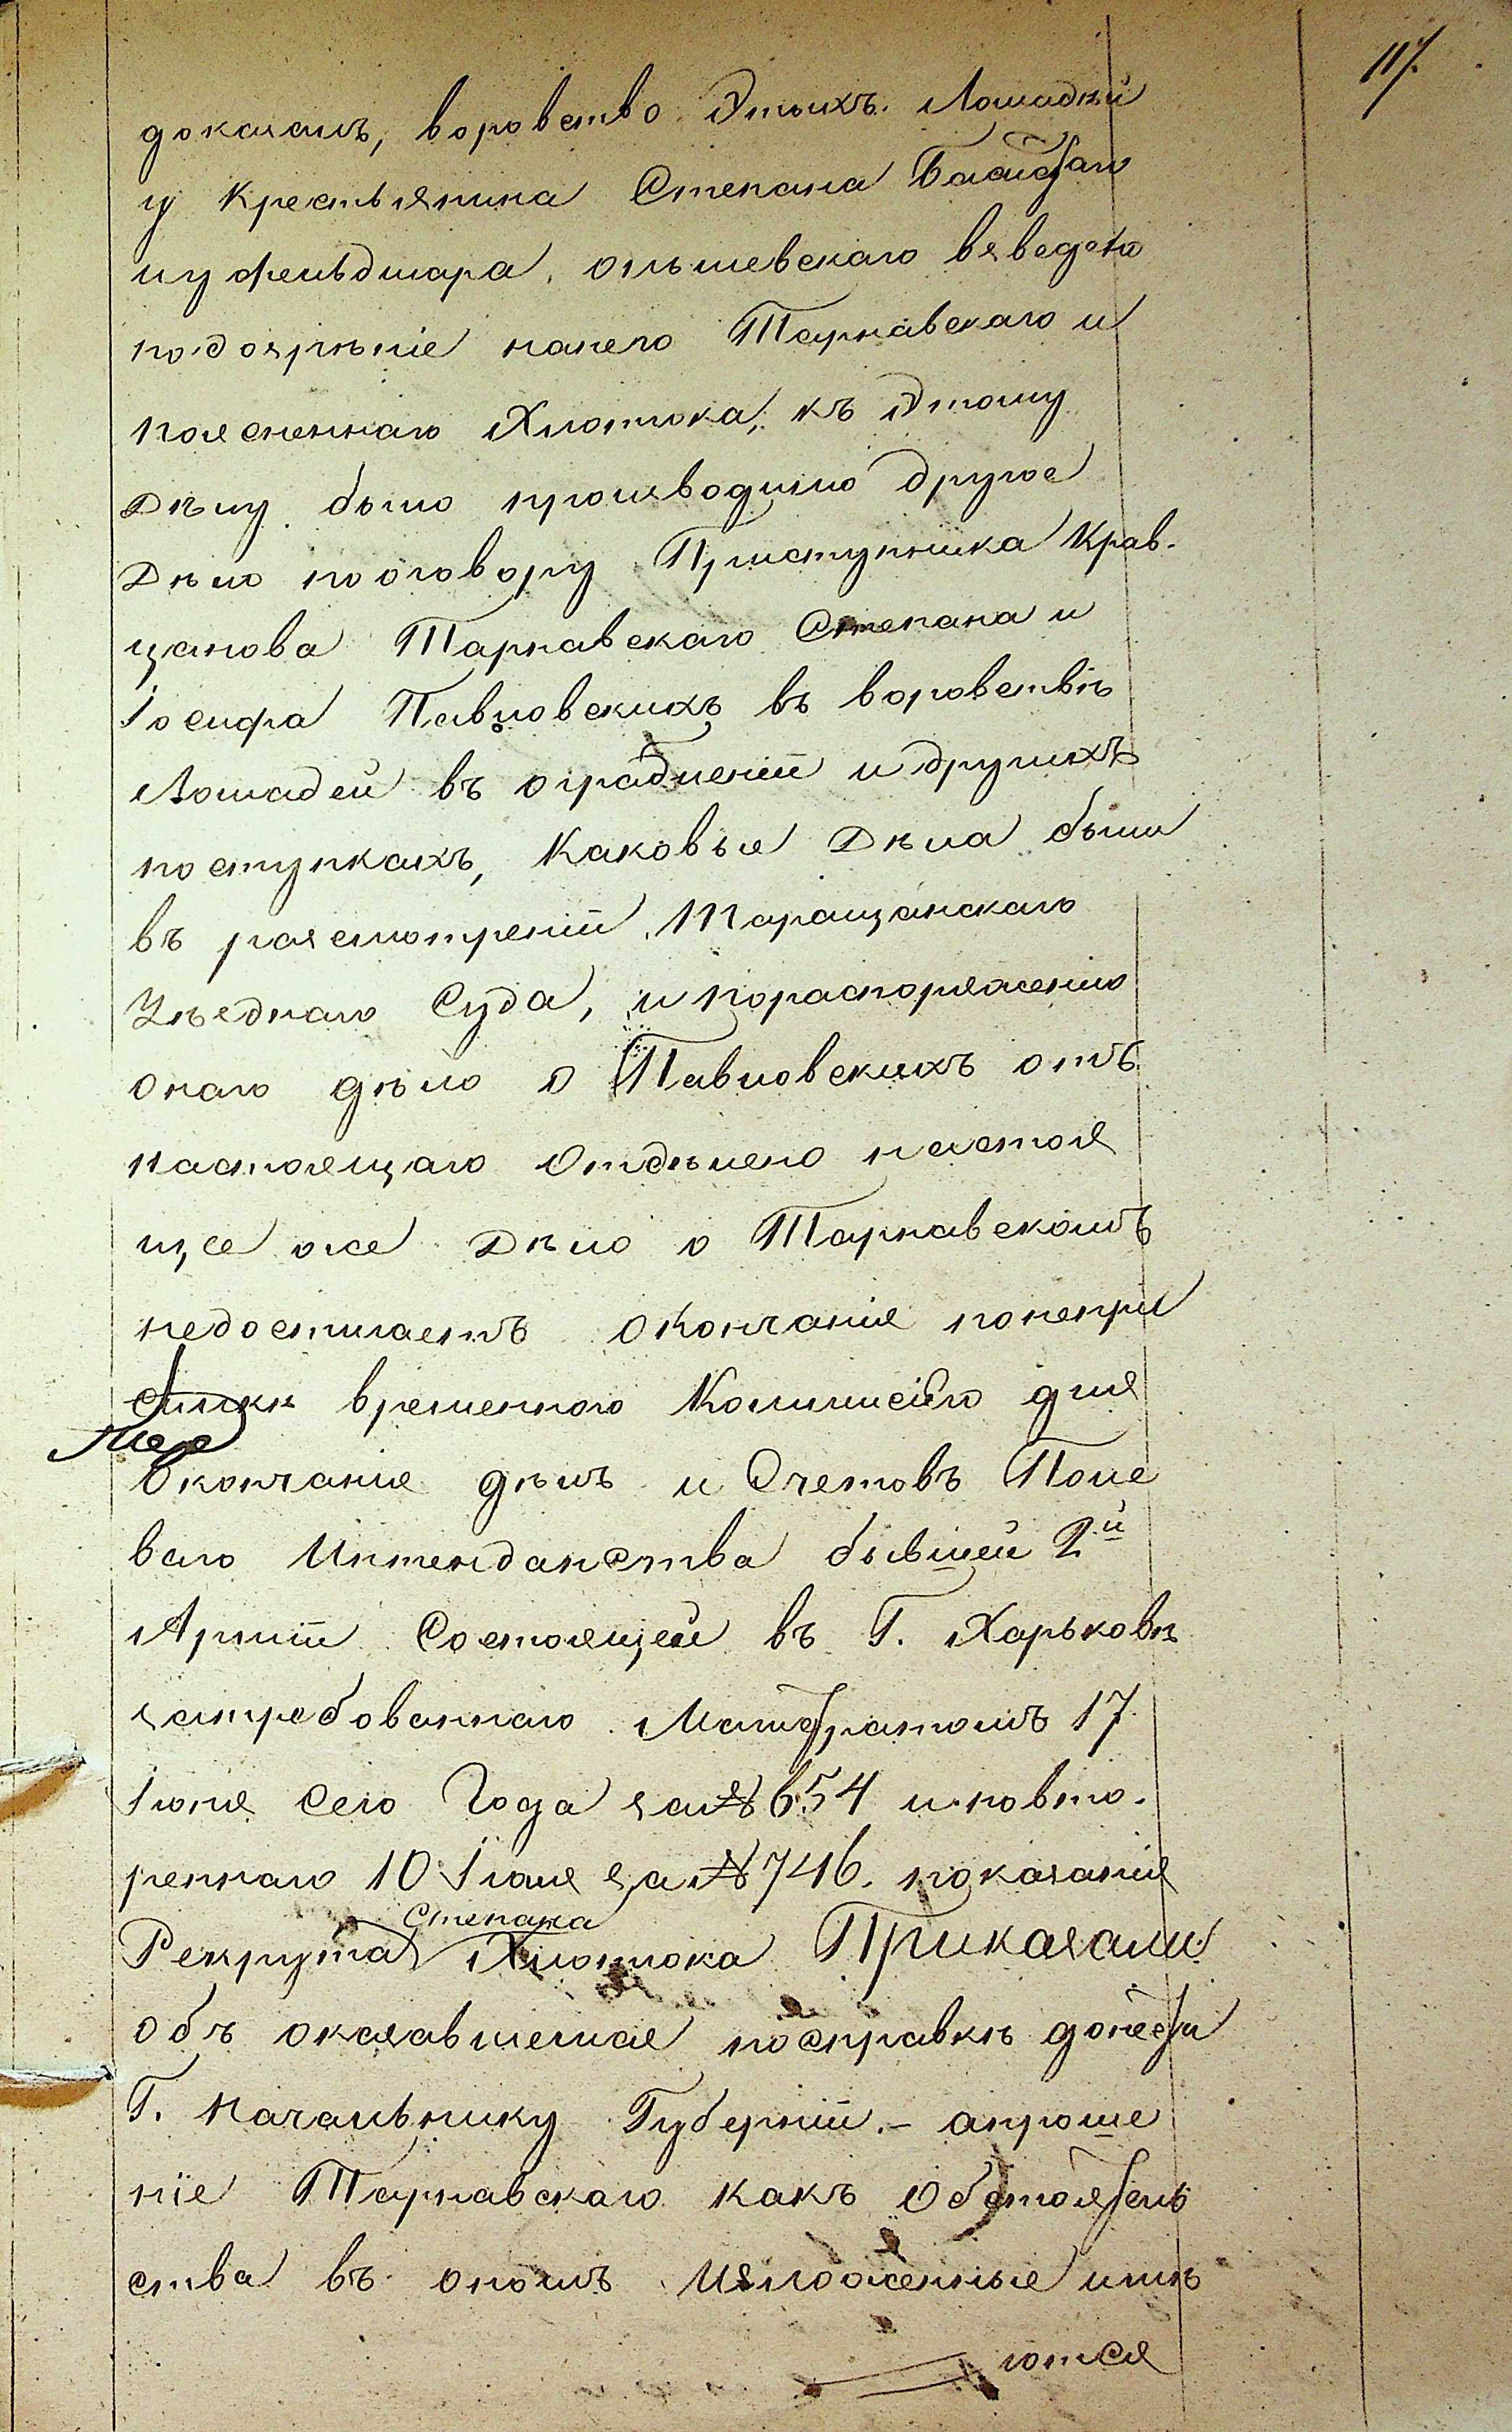 117.
доказалъ, воровство Этыхъ Лошадѣй
у Крестьянина Степана
и у фельдшара, олѣшевскаго взведено
подозрѣніе нанего Тарнавскаго и
поясненнаго Хлопока, къ Этому
Дѣлу было производимо другое
Дѣло по оговору Приступника Крав-
цанова Тарнавскаго Степана и
Іосифа Павловскихъ въ воровствѣ
Лошадей въ ограбленіи и другихъ
поступкахъ, Каковые Дѣла были
въ разсмотреніи Таращанскаго
Уѣзднаго Суда, и пораспоряженію
онаго дѣло о Павловскихъ отъ
настоящаго Отдѣлено настоя
щее же Дѣло о Тарнавскомъ
недостигаетъ окончанія понепри
сылкѣ временного Коммисіею для
Окончанія дѣлъ и Счетовъ Поле
ваго Интенданства бывшей 2й
Арміи Состоящей въ Г. Харьковѣ
затребованнаго Магистратомъ 17
Іюня сего Года за № 654 и повто-
реннаго 10 Іюля за № 746. показанія
Степана
Рекрута Хлопока Приказали
объ оказавшемся посправкѣ донести
Г. Начальнику Губерніи. - апроше
ніе Тарнавскаго какъ Обстоятель
ства въ ономъ Изложенные имѣ
ются